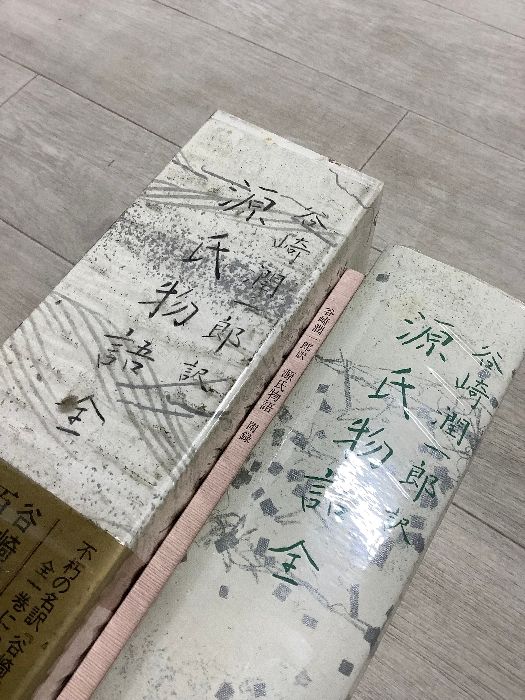 谷崎潤一郎訳
源氏物語全
不朽の名訳『谷崎
全一巻に
谷崎
谷崎潤一郎訳 源氏物語 附録
谷崎潤一郎訳
源氏物語全